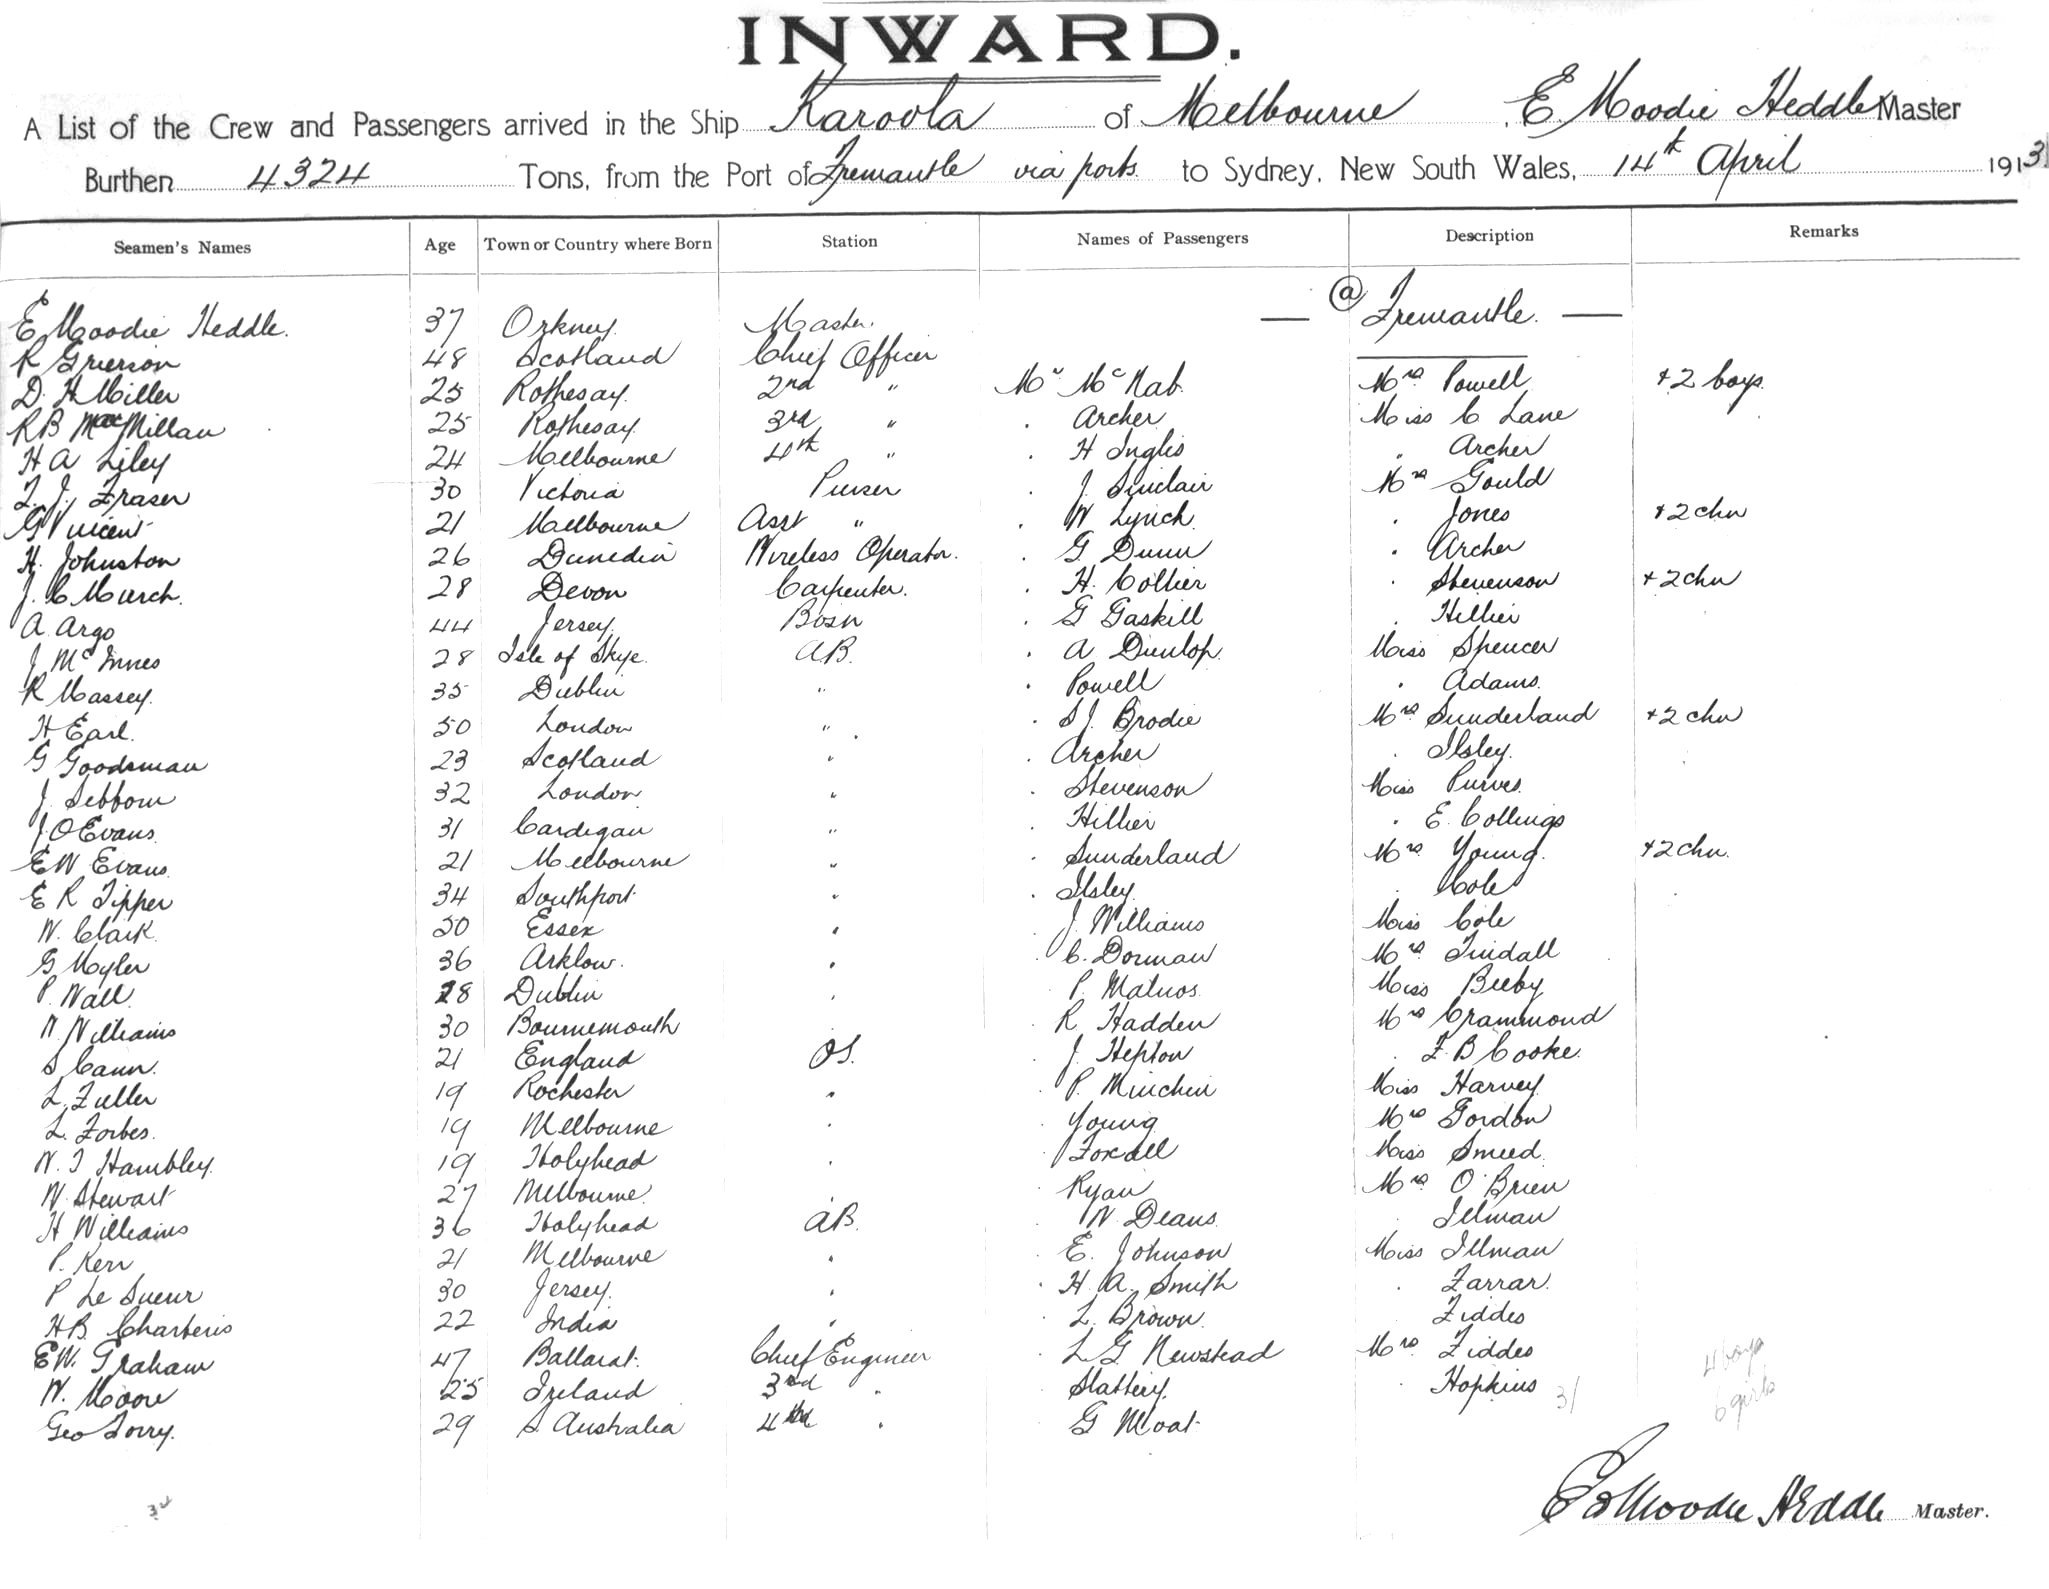 INWARD.
A List of the Crew and Passengers arrived in the Ship Karoola of Melbourne E Moodie Heddle Master
Burthen 4324 Tons, from the Port of Fremantle via ports to Sydney, New South Wales, 14th April 1913
Seamen's Names Age Town or Country where Born Station Names of Passengers Description Remarks
— @ Fremantle. —
E Moodie Heddle. 37 Orkney. Master.
R Grierson 48 Scotland Chief Officer
D. H Miller 25 Rothesay. 2nd " Mr McNab. Mrs Powell + 2 boys.
RB MacMillan 25 Rothesay. 3rd " . Archer Miss C Lane
H A Liley 24 Melbourne 4th " . H Inglis " Archer
T. J. Fraser 30 Victoria Purser . J. Sinclair Mrs Gould
G Vincent 21 Melbourne Asst " . W Lynch . Jones + 2 chn
H. Johnston 26 Dunedin Wireless Operator. . G Dunn . Archer
J. C March. 28 Devon Carpenter. . H. Collier . Stevenson + 2 chn
A. Argo 44 Jersey. Bosn . G Gaskill . Hillier
J McInnes 28 Isle of Skye. AB. . A Dunlop. Miss Spencer
R Massey. 35 Dublin " . Powell . Adams.
H Earl. 50 London " . S J. Brodie Mrs Sunderland + 2 chn
G Goodsman 23 Scotland " . Archer . Ilsley.
J. Sebborn 32 London " . Stevenson Miss Purves.
J. O Evans. 31 Cardigan " . Hillier . E. Collings
EW Evans. 21 Melbourne " . Sunderland Mrs Young. + 2 chn.
E R Tipper 34 Southport " . Ilsley. . Cole
W. Clark. 50 Essex " . J. Williams Miss Cole
G Myler 36 Arklow. " . C. Dorman Mrs Tindall
P. Wall. 28 Dublin . . P. Matuos. Miss Beeby
W. Williams 30 Bournemouth . R Hadden Mrs Crammond
S Cann. 21 England OS. . J. Hepton . F. B Cooke.
L. Fuller 19 Rochester " . P. Minchin Miss Harvey.
L. Forbes. 19 Melbourne . . Young Mrs Gordon
W. J Hambley. 19 Holyhead . . Foxall Miss Smeed.
W. Stewart 27 Melbourne. . . Ryan Mrs O'Brien
H Williams 36 Holyhead AB. . W Deans. . Illman
P. Kerr 21 Melbourne " . E. Johnson Miss Illman
P Le Sueur 30 Jersey. " . H. A. Smith . Farrar.
HB. Charteris 22 India " . L. Brown. Fiddes
EW. Graham 47 Ballarat. Chief Engineer . L G. Newstead Mrs Fiddes 4 boys
W. Moore 25 Ireland 3rd " . Slattery. . Hopkins 31 6 girls
Geo Lorry. 29 S. Australia 4th " . G Moat
34
E Moodie Heddle Master.